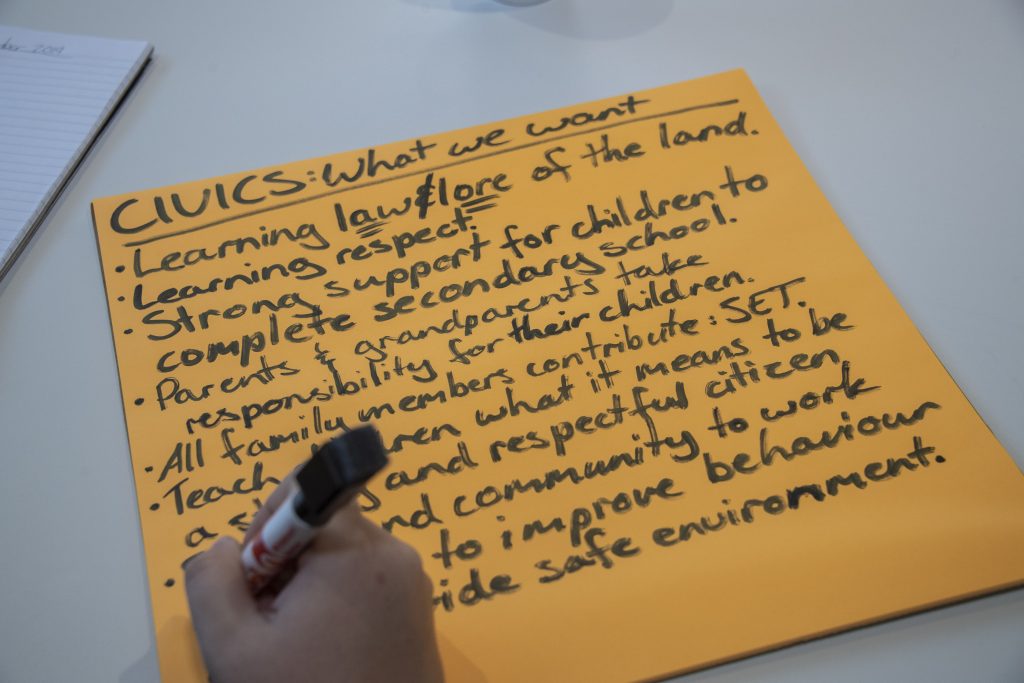 2019
CIVICS: What we want
• Learning law & lore of the land.
• Learning respect.
• Strong support for children to
complete secondary school.
• Parents & grandparents take
responsibility for their children.
• All family members contribute: SET.
• Teach what it means to be
a and respectful citizen
• community to work
to improve behaviour
safe environment.